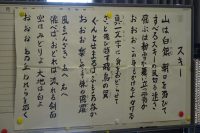 スキー
山は白銀 朝日を浴びて
滑るスキーの風切る速さ
飛ぶは粉雪か舞い立つ霧か
おおおこの身もかけるよかける
真一文字に身をおどらせて
さっと飛び越す飛鳥の翼
ぐんとせまるはふもとか谷か
おおおたのしや手練の飛躍
風をつんざき左へ右へ
飛べばおどれば流れる斜面
空はみどりよ大地は白よ
おおおあの丘われらを招く